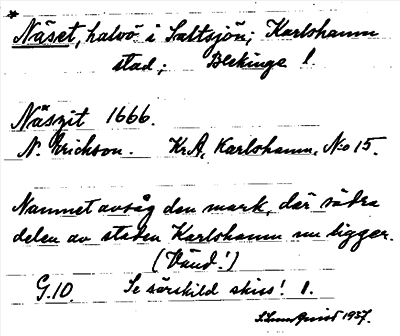 * Näset, halvö i Saltsjön; Karlshamn
stad; Blekinge l
Näszit 1666.
N. Erickson. Kr.A, Karlshamn, No 15.
Namnet avsåg den mark, där södra
delen av staden Karlshamn nu ligger.
(Vänd!)
G.10. Se särskild skiss! 1.
S. Lundquist 1937.